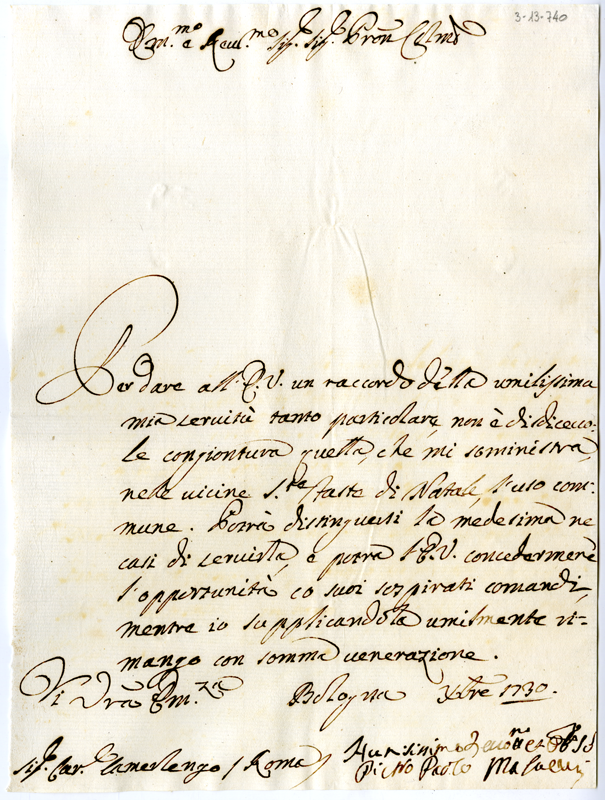 3-13-740
Em.mo e Reu.mo Sig. Sig. Pron Colmo
Per dare all'E.V. un raccordo della umilissima
mia seruitù tanto particolare, non è disdiceuo-
le congiontura quella, che mi soministra,
nele uicine S.te faste di Natale, l'uso com-
mune. Potrà distinguersi la medesima ne
casi di seruirla, e potrà l'E.V. concedermene
l'opportunità co suoi sospirati comandi,
mentre io supplicandola umilmente ri-
mango con somma uenerazione.
Di Vra Em.za Bologna Xbre 1730.
Sig. Car. Camerlengo / Roma
Pietro Paolo